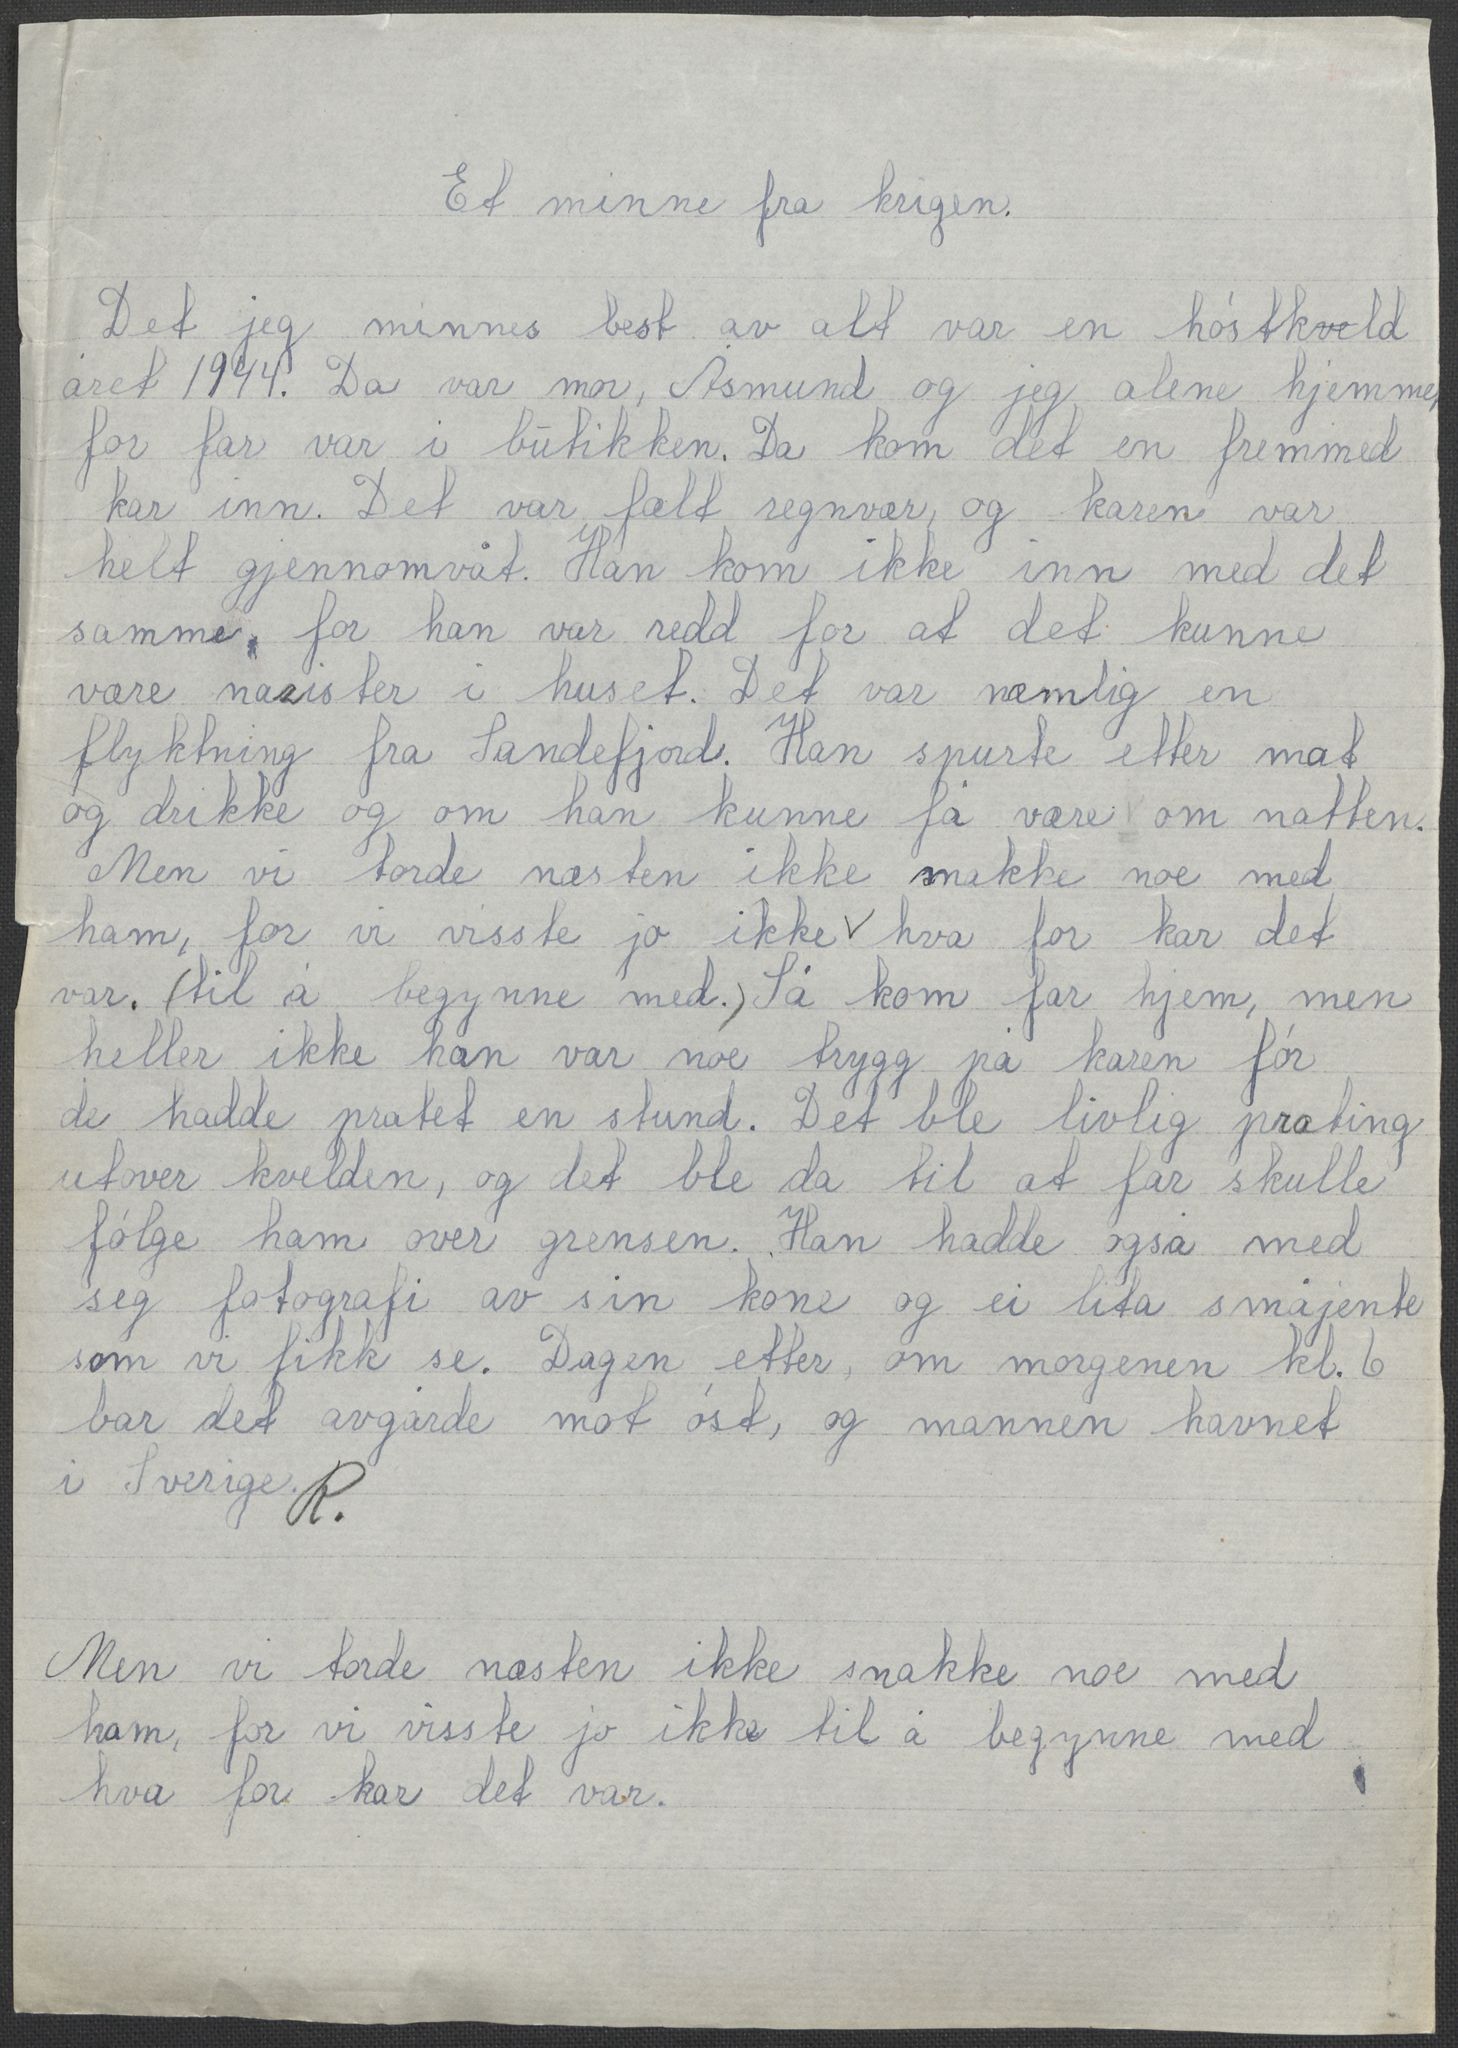 Et minne fra krigen.
Det jeg minnes best av alt var en hóstkveld
året 1944. Da var mor, Åsmund og jeg alene hjemme,
for far var i būtikken. Da kom det en fremmed
kar inn. Det var fælt regnvær, og karen var
helt gjennomvåt. Han kom ikke inn med det
samme, for han var redd for at det kunne
være nazister i huset. Det var næmlig en
flyktning fra Sandefjord. Han spurte etter mat
og drikke og om han kunne få være om natten.
Men vi torde næsten ikke snakke noe med
ham, for vi visste jo ikke √ hva for kar det
var. (til å begynne med.) Så kom far hjem, men
heller ikke han var noe trygg på karen fór
de hadde pratet en stund. Det ble livlig prating
utover kvelden, og det ble da til at far skulle
fólge ham over grensen. Han hadde også med
seg fotografi av sin kone og ei lita småjente
som vi fikk se. Dagen etter, om morgenen kl. 6
bar det avgårde mot óst, og mannen havnet
i Sverige. R.
Men vi torde næsten ikke snakke noe med
ham, for vi visste jo ikke til å begynne med
hva for kar det var.